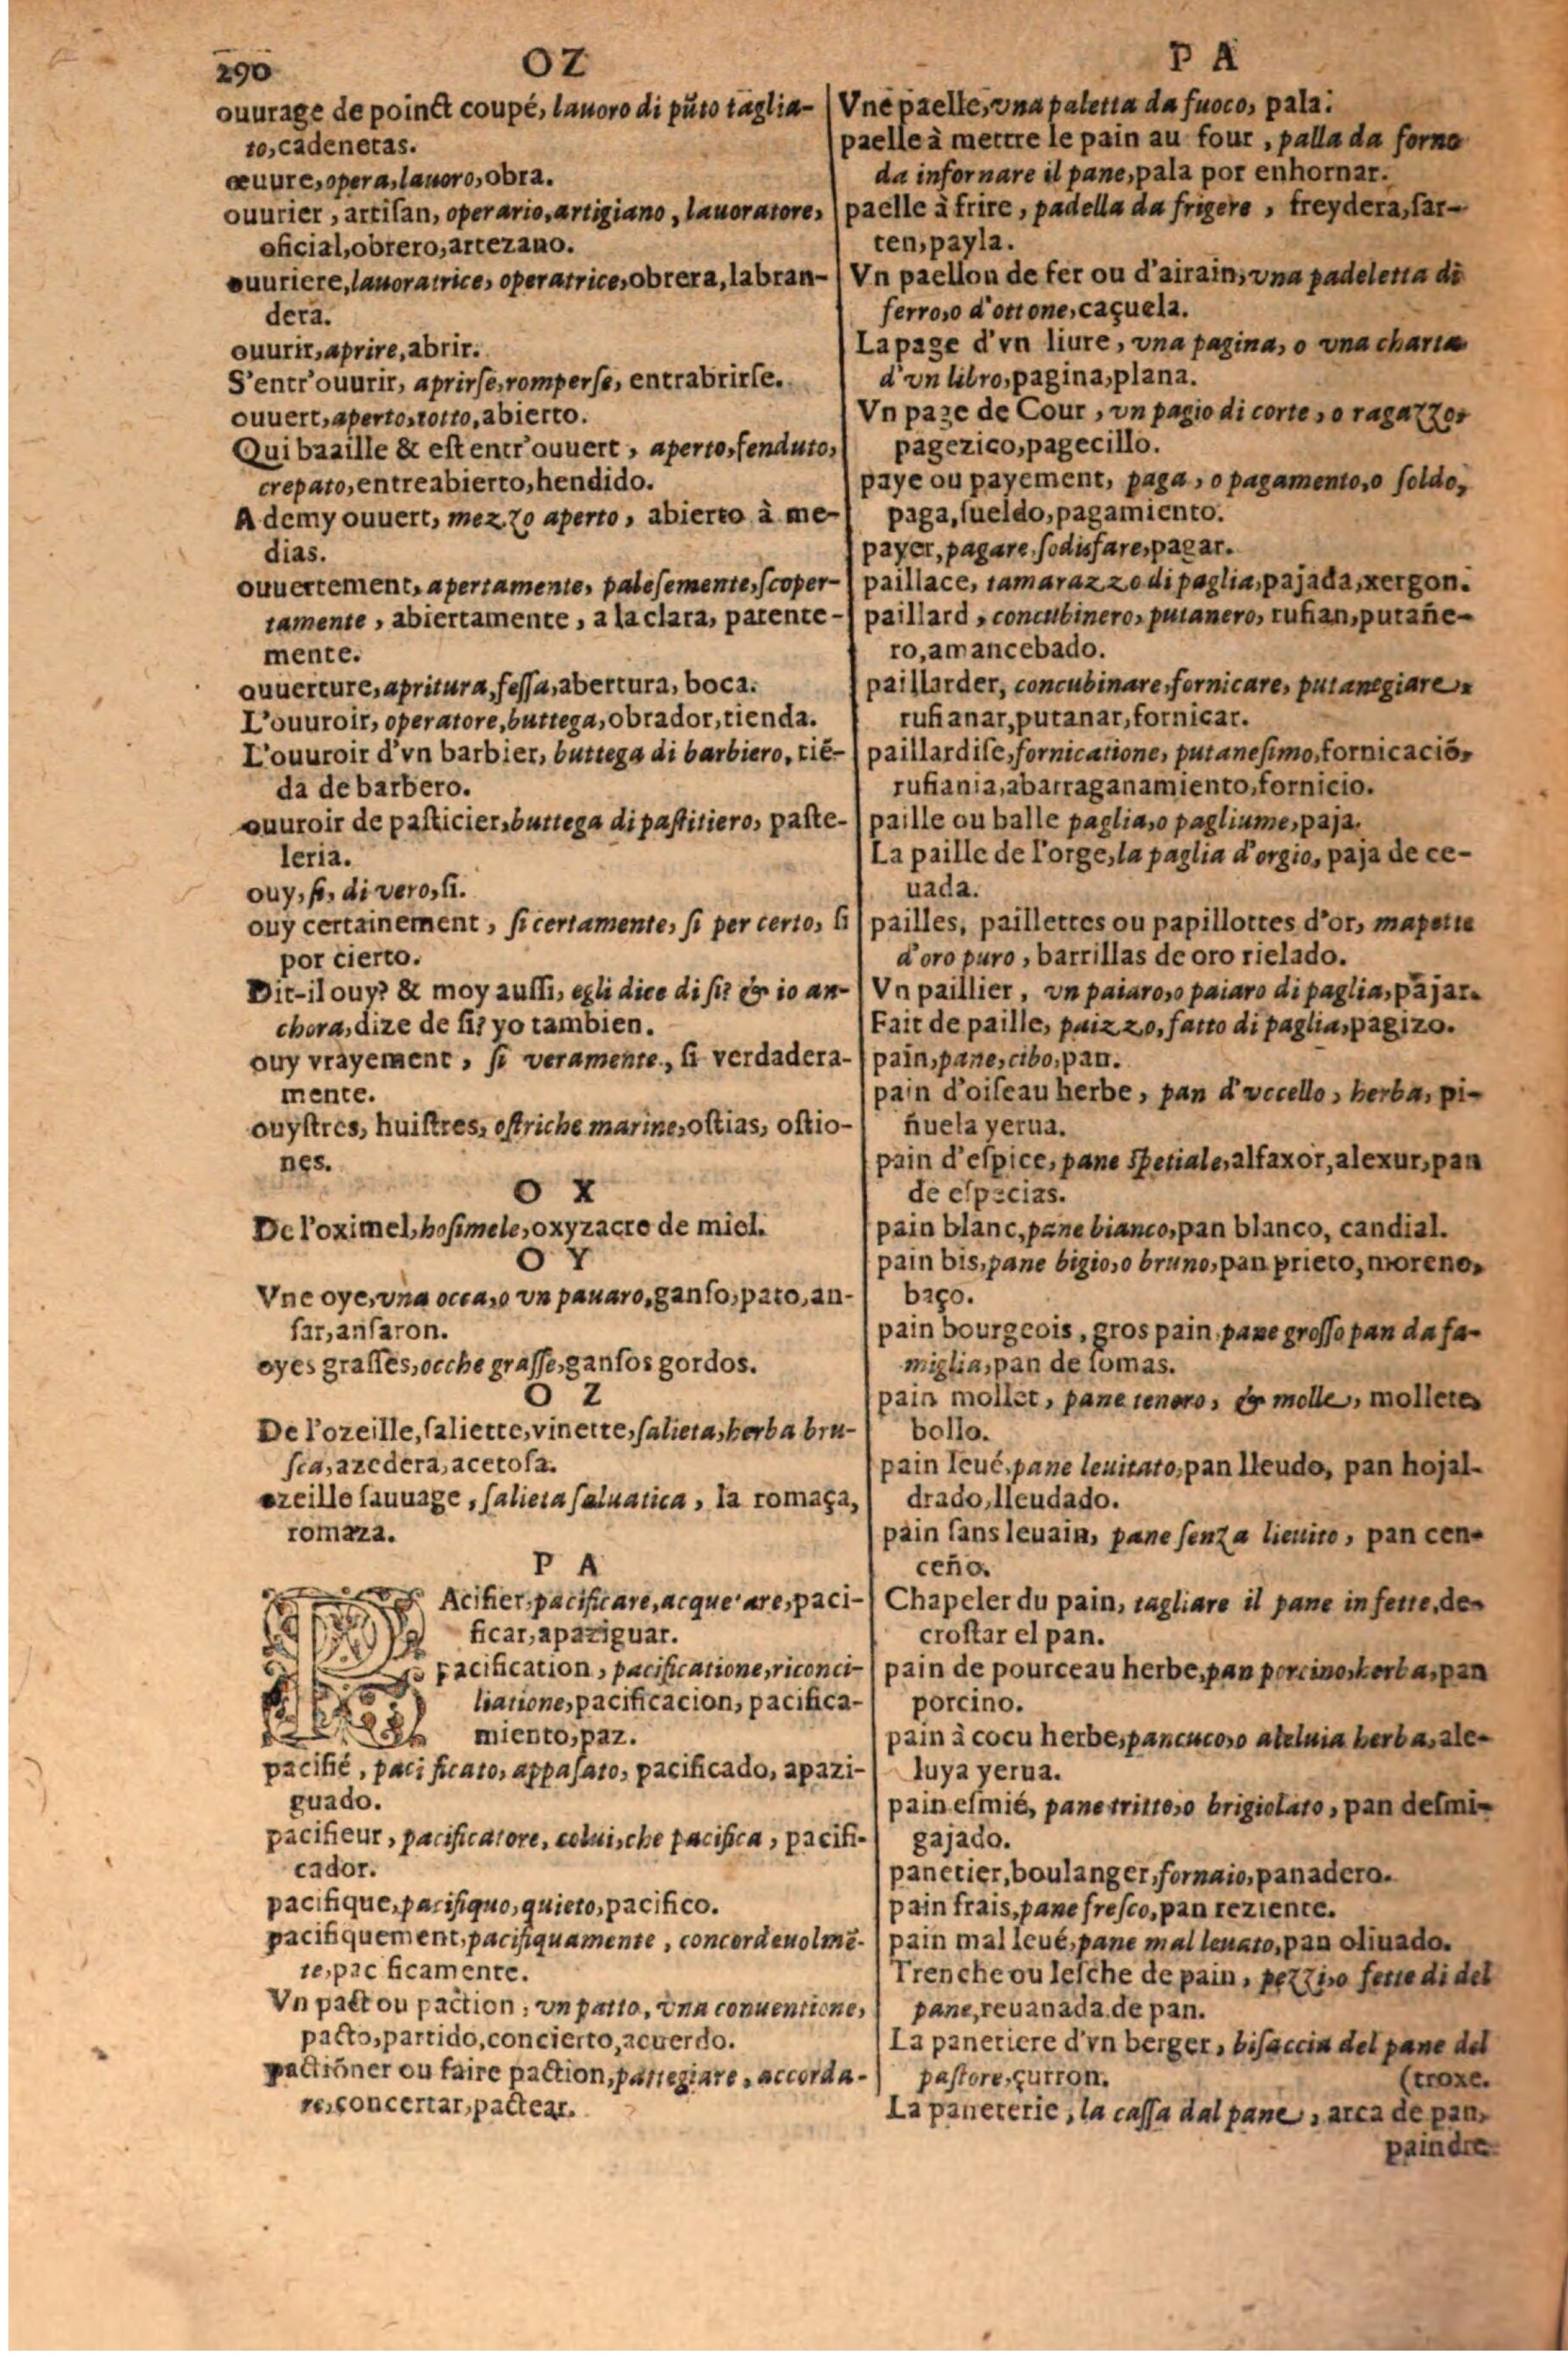 290
OZ
PA
ouurage de poinct coupé, lauoro di pũto taglia-
to, cadenetas.
œuure, opera, lauoro, obra.
ouurier, artiſan, operario, artigiano, lauoratore,
oficial, obrero, artezano.
ouuriere, lauoratrice, operatrice, obrera, labran-
dera.
ouurir, aprire, abrir.
S'entr'ouurir, aprirſe, romperſe, entrabrirſe.
ouuert, aperto, rotto, abierto.
Qui baaille & eſt entr'ouuert, aperto, fenduto,
crepato, entreabierto, hendido.
A demy ouuert, mezzo aperto, abierto à me-
dias.
ouuertement, apertamente, paleſemente, ſcoper-
tamente, abiertamente, a la clara, patente-
mente.
ouuerture, apritura, feſſa, abertura, boca.
L'ouuroir, operatore, buttega, obrador, tienda.
L'ouuroir d'vn barbier, buttega di barbiero, tiẽ-
da de barbero.
ouuroir de paſticier, buttega di paſtitiero, paſte-
leria.
ouy, ſi, di vero, ſi.
ouy certainement, ſi certamente, ſi per certo, ſi
por cierto.
Dit-il ouy? & moy auſſi, egli dice di ſi? & io an-
chora, dize de ſi? yo tambien.
ouy vrayement, ſi veramente, ſi verdadera-
mente.
ouyſtres, huiſtres, oſtriche marine, oſtias, oſtio-
nes.
O X
De l'oximel, hoſimele, oxyzacre de miel.
O Y
Vne oye, vna occa, o vn pauaro, ganſo, pato, an-
ſar, anſaron.
oyes graſſes, ocche graſſe, ganſos gordos.
O Z
De l'ozeille, ſaliette, vinette, ſalieta, herba bru-
ſca, azedera, acetoſa.
ozeille ſauuage, ſalieta ſaluatica, la romaça,
romaza.
P A
PAcifier, pacificare, acquetare, paci-
ficar, apaziguar.
pacification, pacificatione, riconci-
liatione, pacificacion, pacifica-
miento, paz.
pacifié, pacificato, appaſato, pacificado, apazi-
guado.
pacifieur, pacificatore, colui, che pacifica, pacifi-
cador.
pacifique, pacifiquo, quieto, pacifico.
pacifiquement, pacifiquamente, concordeuolmẽ-
te, pacificamente.
Vn pact ou paction, vn patto, vna conuentione,
pacto, partido, concierto, acuerdo.
pactiõner ou faire paction, pattegiare, accorda-
re, concertar, pactear.
Vne paelle, vna paletta da fuoco, pala.
paelle à mettre le pain au four, palla da forno
da infornare il pane, pala por enhornar.
paelle à frire, padella da frigere, freydera, ſar-
ten, payla.
Vn paellon de fer ou d'airain, vna padeletta di
ferro, o d'ottone, caçuela.
La page d'vn liure, vna pagina, o vna charta
d'vn libro, pagina, plana.
Vn page de Cour, vn pagio di corte, o ragazzo,
pagezico, pagecillo.
paye ou payement, paga, o pagamento, o ſoldo,
paga, ſueldo, pagamiento.
payer, pagare, ſodisfare, pagar.
paillace, tamarazzo di paglia, pajada, xergon.
paillard, concubinero, putanero, rufian, putañe-
ro, amancebado.
paillarder, concubinare, fornicare, putanegiare,
rufianar, putanar, fornicar.
paillardiſe, fornicatione, putaneſimo, fornicaciõ,
rufiania, abarraganamiento, fornicio.
paille ou balle paglia, o pagliume, paja.
La paille de l'orge, la paglia d'orgio, paja de ce-
uada.
pailles, paillettes ou papillottes d'or, mapette
d'oro puro, barrillas de oro rielado.
Vn paillier, vn paiaro, o paiaro di paglia, pajar.
Fait de paille, paizzo, fatto di paglia, pagizo.
pain, pane, cibo, pan.
pain d'oiſeau herbe, pan d'vccello, herba, pi-
ñuela yerua.
pain d'eſpice, pane ſpetiale, alfaxor, alexur, pan
de eſpecias.
pain blanc, pane bianco, pan blanco, candial.
pain bis, pane bigio, o bruno, pan prieto, moreno,
baço.
pain bourgeois, gros pain, pane groſſo pan da fa-
miglia, pan de ſomas.
pain mollet, pane tenero, & molle, mollete,
bollo.
pain leué, pane leuitato, pan lleudo, pan hojal-
drado, lleudado.
pain ſans leuain, pane ſenza lieuito, pan cen-
ceño.
Chapeler du pain, tagliare il pane in fette, de-
croſtar el pan.
pain de pourceau herbe, pan porcino, herba, pan
porcino.
pain à cocu herbe, pancuco, o aleluia herba, ale-
luya yerua.
pain eſmié, pane tritto, o brigiolato, pan deſmi-
gajado.
panetier, boulanger, fornaio, panadero.
pain frais, pane freſco, pan reziente.
pain mal leué, pane mal leuato, pan oliuado.
Trenche ou leſche de pain, pezzi, o fette di del
pane, reuanada de pan.
La panetiere d'vn berger, biſaccia del pane del
paſtore, çurron.
(troxe.
La paneterie, la caſſa dal pane, arca de pan,
paindre